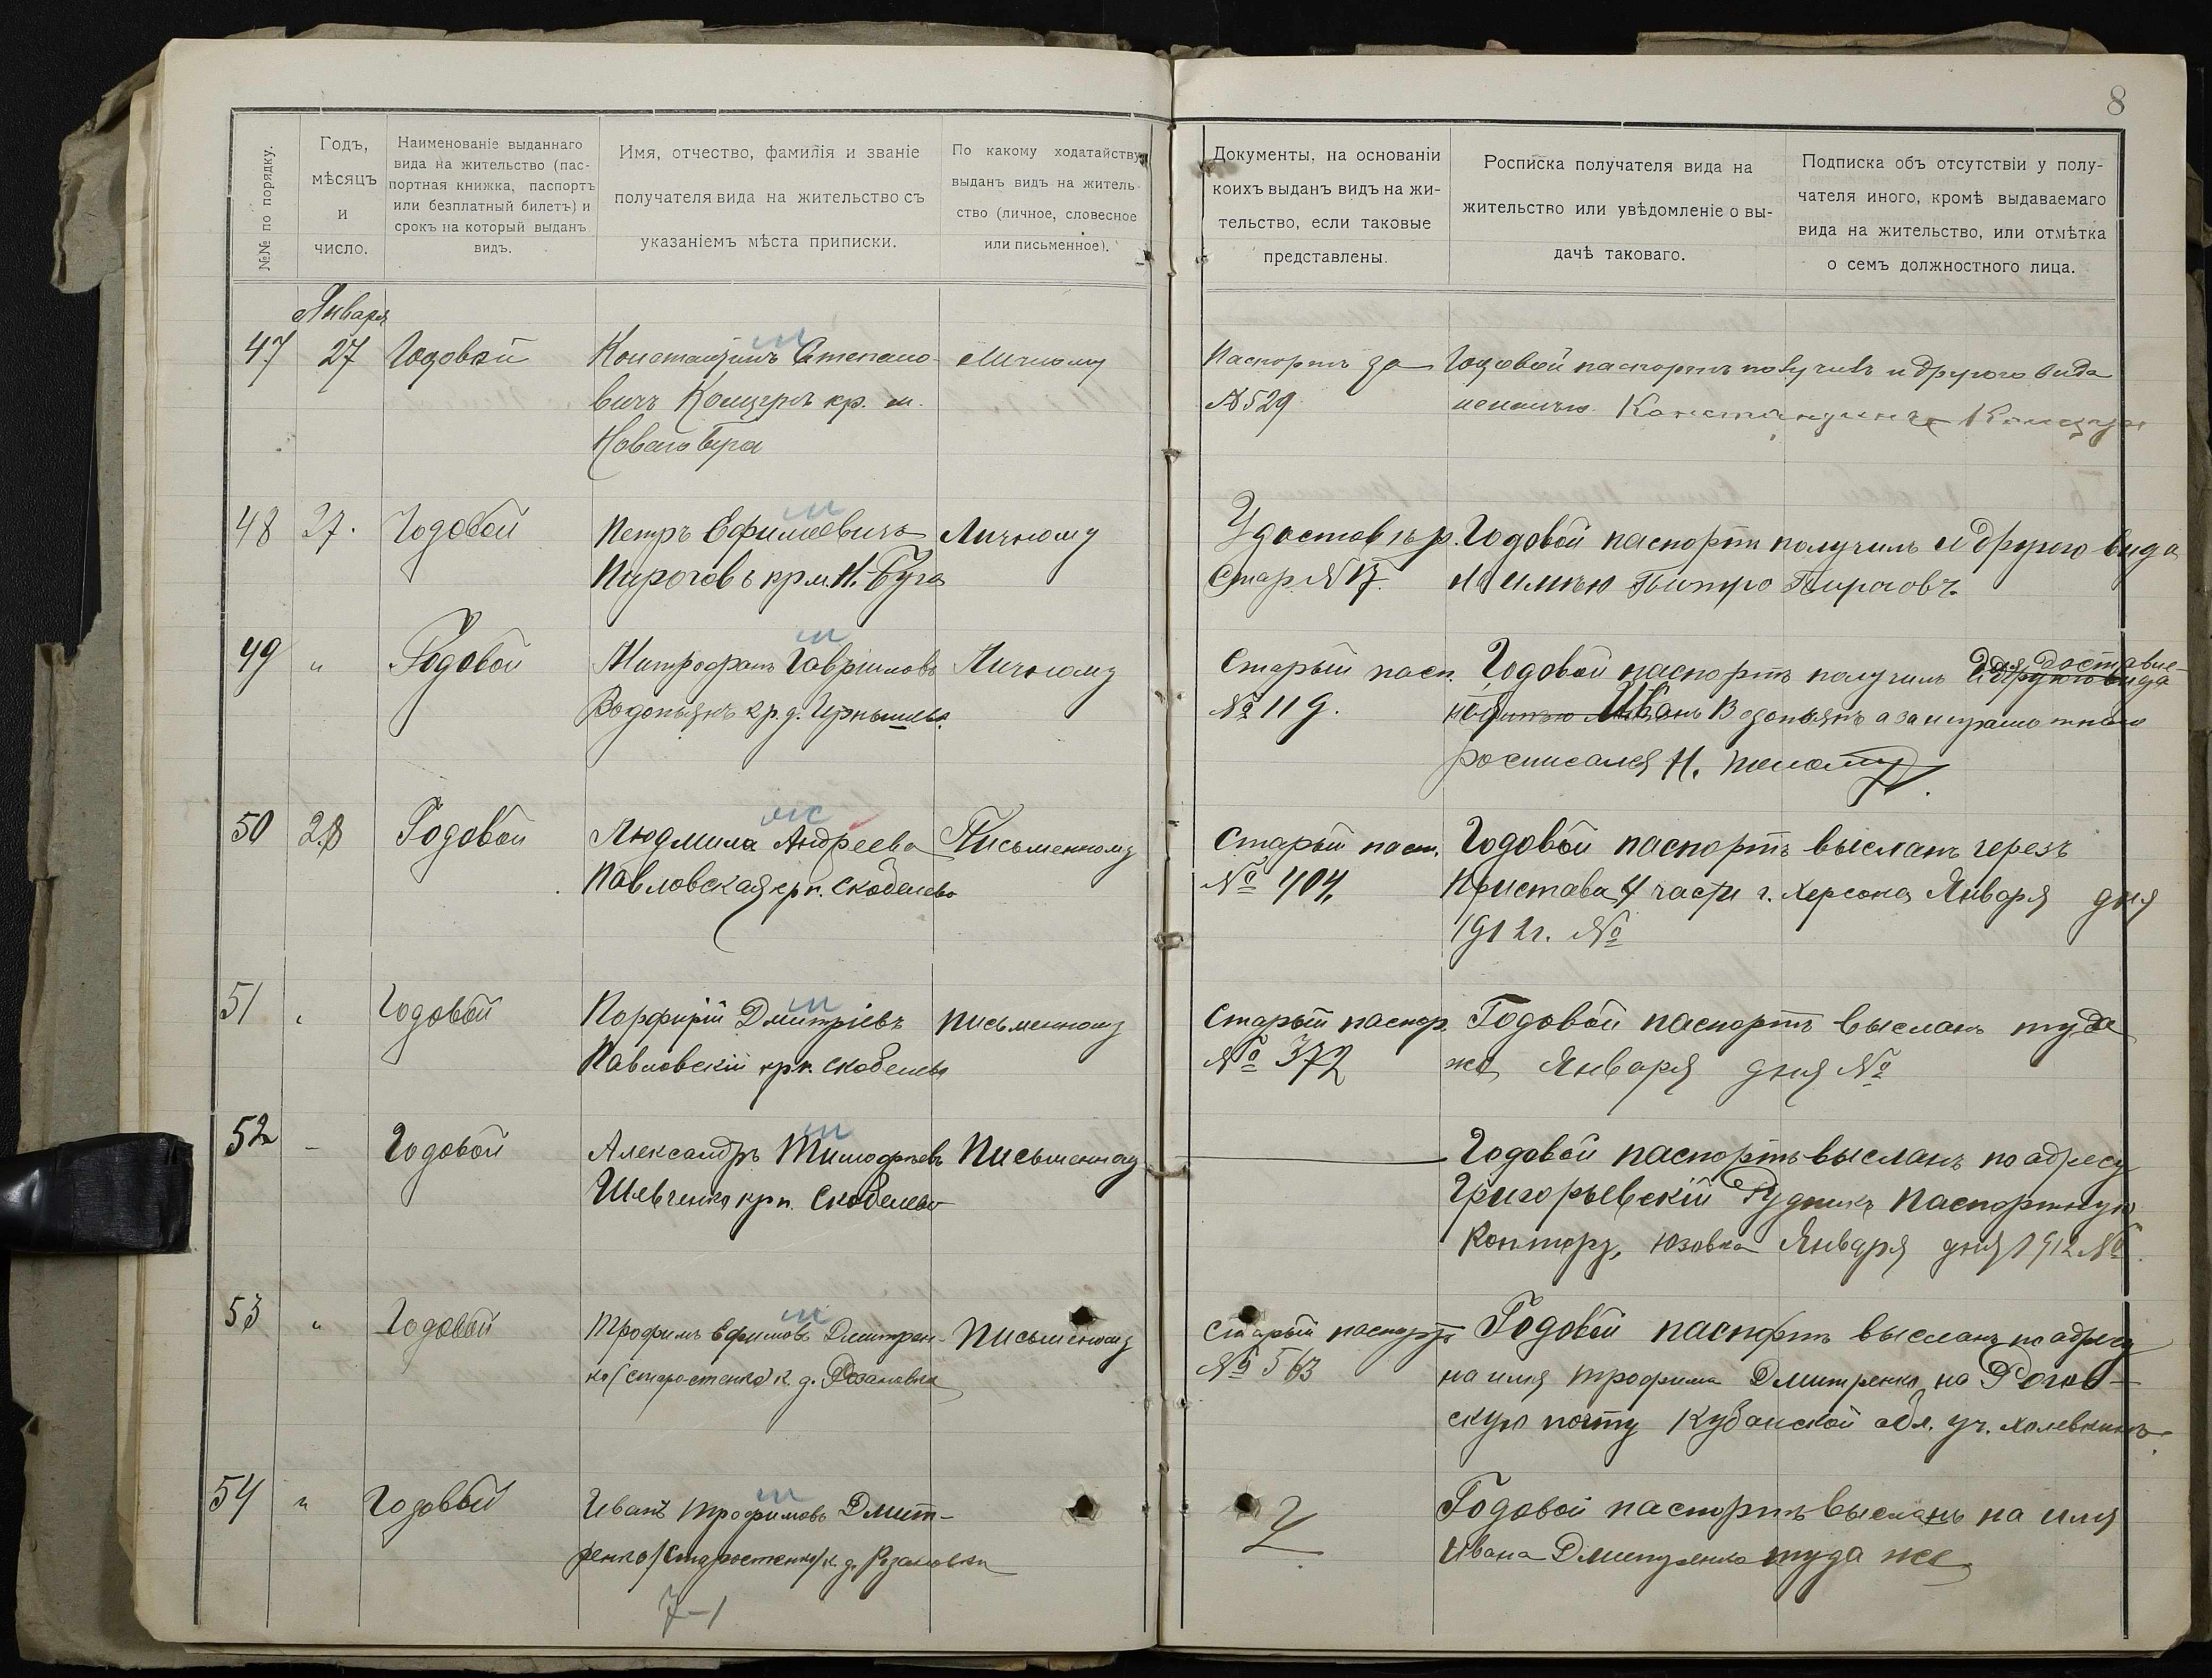 8
№№ по порядку.
Годъ,
мѣсяцъ
и
число.
Наименованіе выданнаго
вида на жительство (пас-
портная книжка, паспортъ
или безплатный билетъ) и
срокъ на который выданъ
видъ.
Имя, отчество, фамилія и званіе
получателя вида на жительство съ
указаніемъ мѣста приписки.
По какому ходатайству
выданъ видъ на житель-
ство (личное, словесное
или письменное).
Документы, на основаніи
коихъ выданъ видъ на жи-
тельство, если таковые
представлены.
Росписка получателя вида на
жительство или увѣдомленіе о вы-
дачѣ таковаго.
Подписка объ отсутствіи у полу-
чателя иного, кромѣ выдаваемаго
вида на жительство, или отмѣтка
о семъ должностного лица.
Января
47 27 Годовой Константинъ Степано- Личному Паспортъ за Годовой паспортъ получилъ и другого вида
вичъ кр. м. №529 неимѣю
Новаго Буга
48 27. Годовой Петръ Ефимовичъ Личному Удостовѣр. Годовой паспортъ получилъ и другого вида
Пироговъ кр м. Н.-Буга Стар. № 17. не имѣю Питро Пироговъ
49 " Годовой Митрофанъ Гавріиловъ Личному Старый пасп. Годовой паспортъ получилъ и другого вида для доставле-
Водопьянъ кр. д. № 119. Иванъ Водопьянъ а за неграмотнаго
росписался Н.
50 28 Годовой Людмила Андреева Письменному Старый пасп. Годовой паспортъ высланъ черезъ
Павловская кр п. Скобелево № 404. Пристава 4 части г. Херсона Января дня
1912 г. №
51 " Годовой Порфирій Дмитріевъ письменному Старый паспор. Годовой паспортъ высланъ туда
Павловскій кр п. Скобелево № 372 же Января дня №
52 – Годовой Александръ Тимофѣевъ Письменному — Годовой паспортъ высланъ по адресу
Шевченко кр п. Скобелево Григорьевскій Рудникъ Паспортную
Контору, Юзовка Января дня 1912 №
53 " Годовой Трофимъ Ефимовъ Дмитрен- Письменному Старый паспортъ Годовой паспортъ высланъ по адресу
ко (Старостенко) к. д. Розановка № 563 на имя Трофима Дмитренко на Рогов-
скую почту Кубанской обл. уч.
54 " Годовой Иванъ Трофимовъ Дмит- Годовой паспортъ высланъ на имя
ренко (Старостенко) к. д. Розановка Ивана Дмитренко туда же
7-1